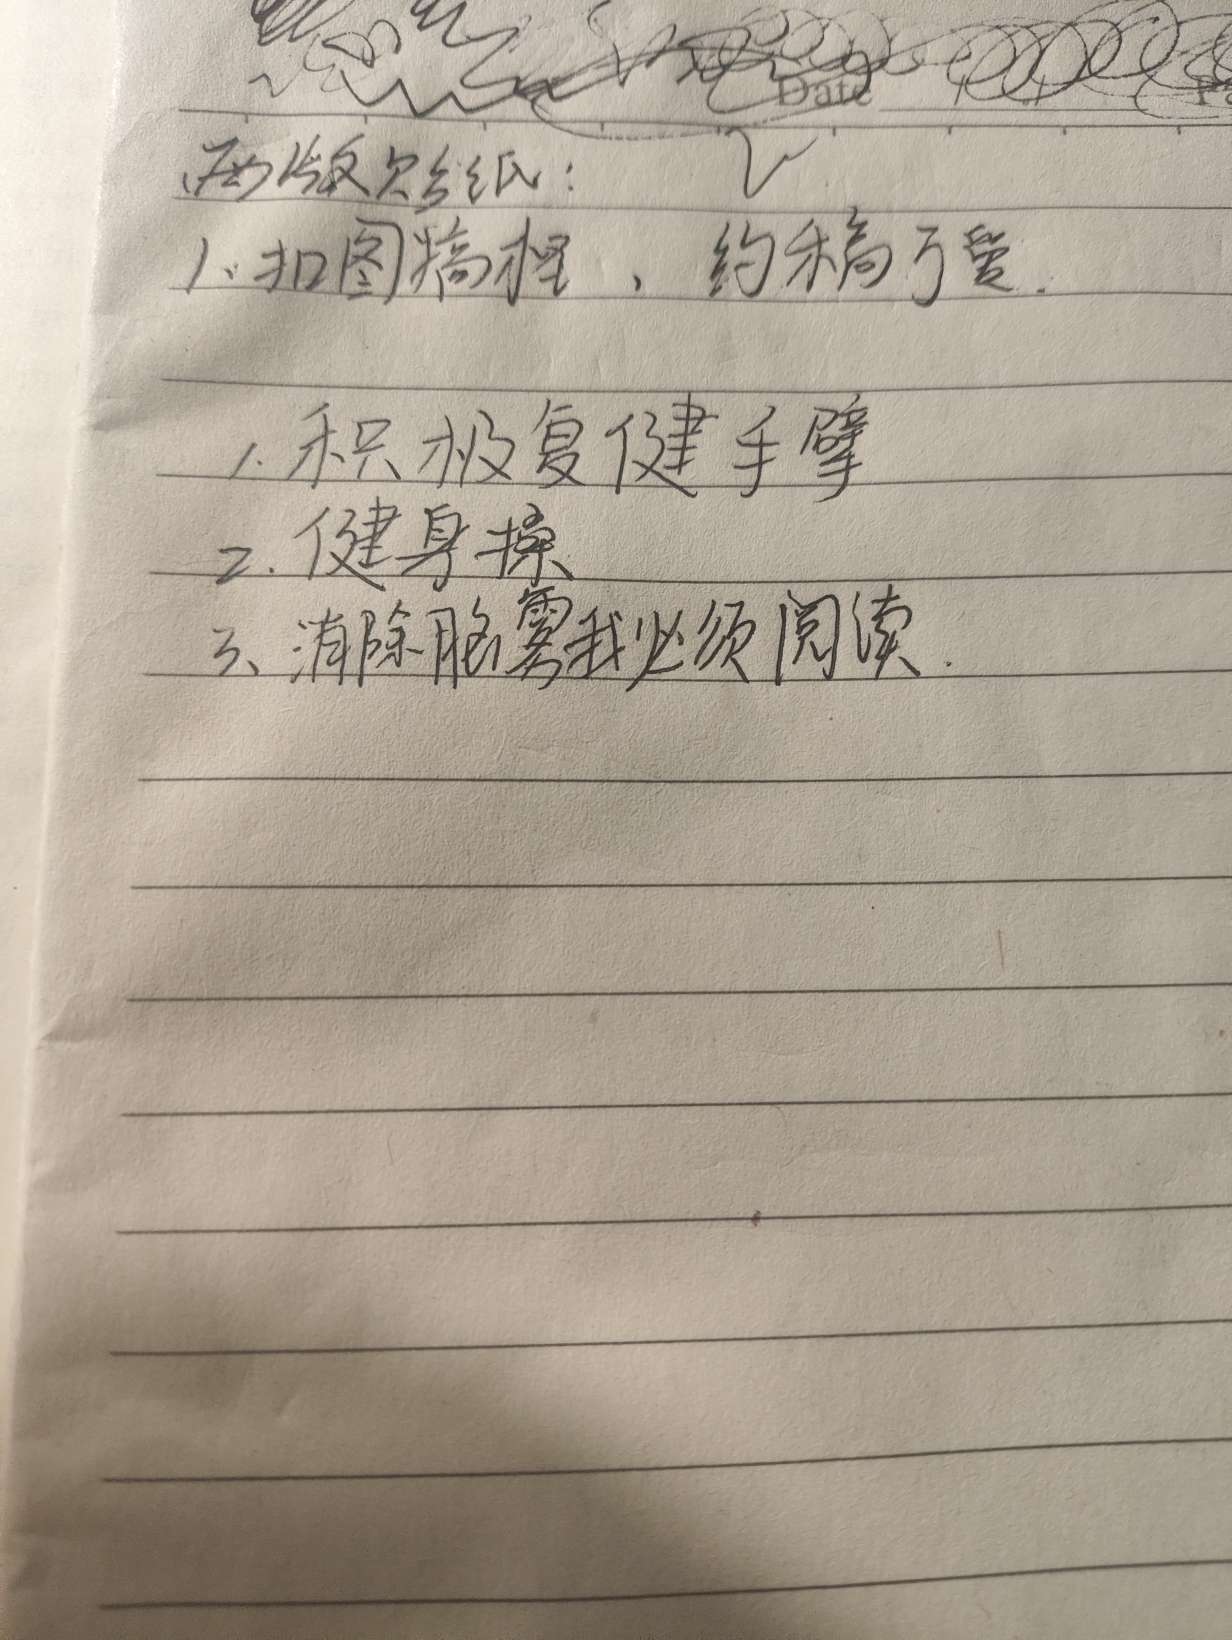 Date
两版贴纸:
1. 扣图搞框, 约稿
1. 积极复健手臂
2. 健身操
3、消除脑雾我必须阅读.